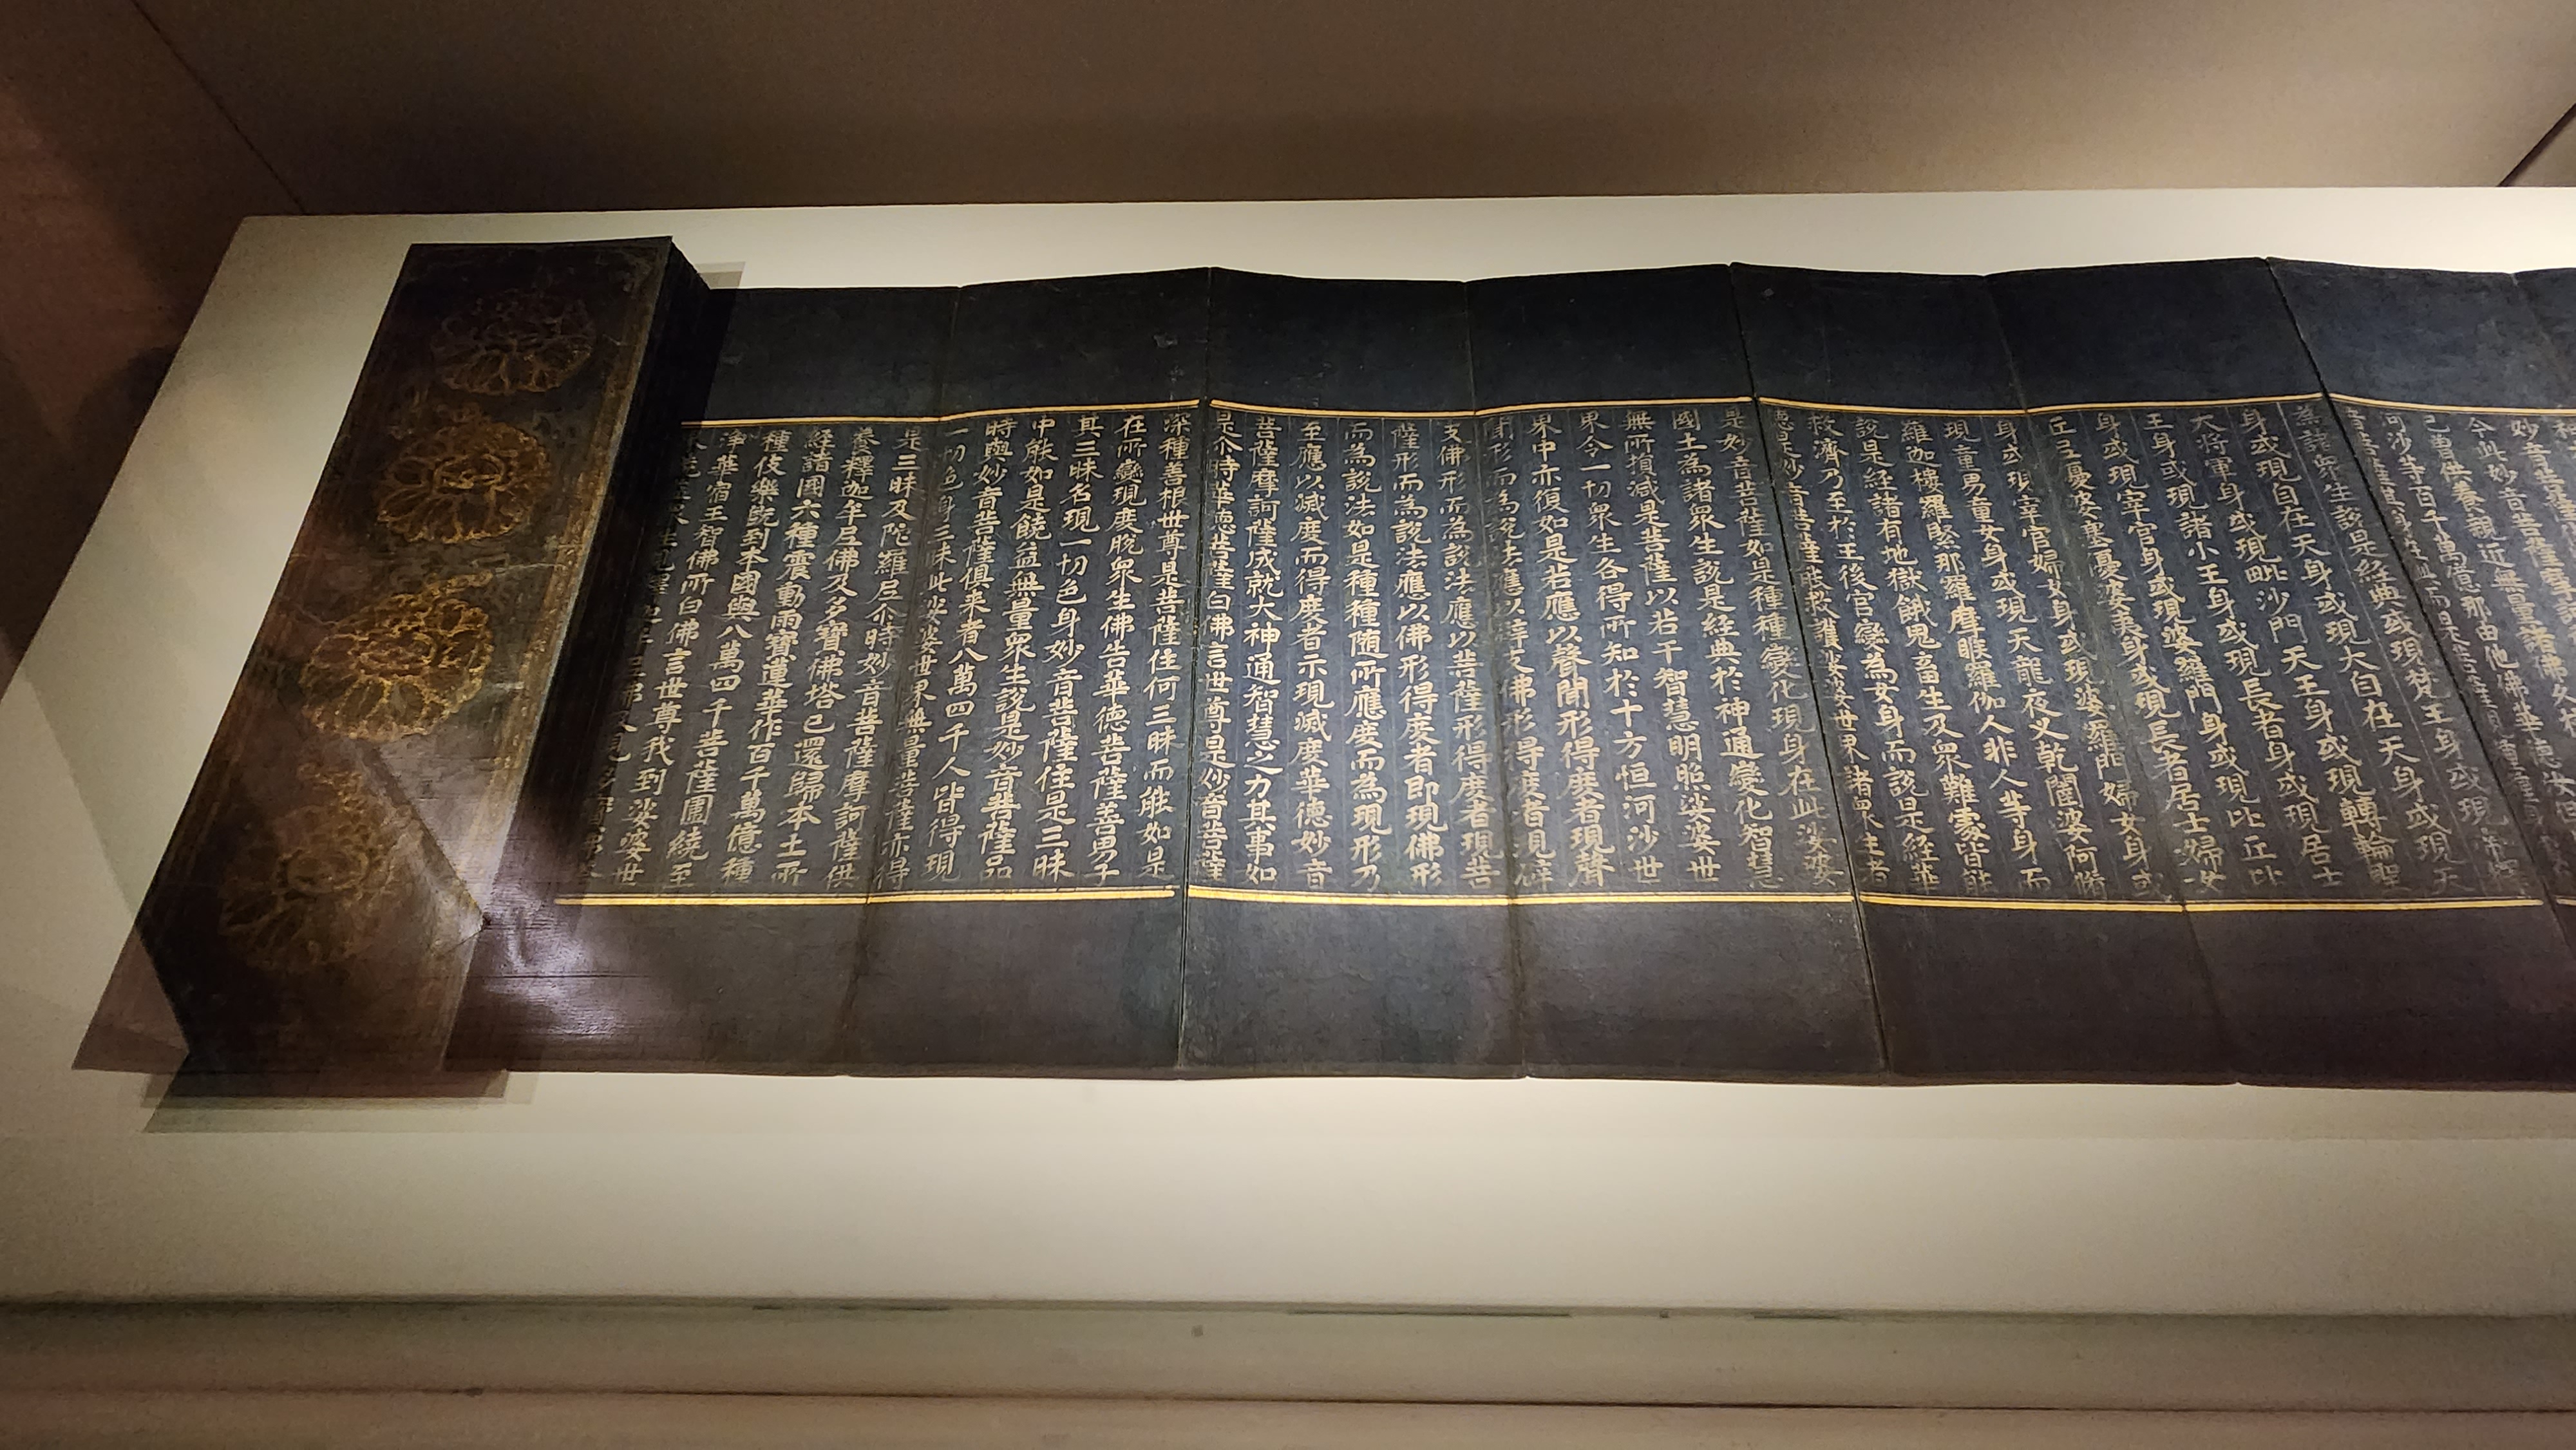 巳曾供養親近無量諸佛
河沙等百千萬億那由他佛華德汝
音菩薩其身在此而是菩薩現種種身
為諸衆生說是經典或現梵王身或現帝釋
身或現自在天身或現大自在天身或現天
大將軍身或現毗沙門天王身或現轉輪聖
王身或現諸小王身或現長者身或現居士
身或現宰官身或現婆羅門身或現比丘比
丘尼優婆塞優婆夷身或現長者居士婦女
身或現宰官婦女身或現婆羅門婦女身或
現童男童女身或現天龍夜叉乾闥婆阿脩
羅迦樓羅緊那羅摩睺羅伽人非人等身而
說是經諸有地獄餓鬼畜生及衆難處皆能
救濟乃至於王後宮變為女身而說是經華
德是妙音菩薩能救護娑婆世界諸衆生者
是妙音菩薩如是種種變化現身在此娑婆
國土為諸衆生說是經典於神通變化智慧
無所損減是菩薩以若干智慧明照娑婆世
界令一切衆生各得所知於十方恒河沙世
界中亦復如是若應以聲聞形得度者現聲
聞形而為說法應以辟支佛形得度者現辟
支佛形而為說法應以菩薩形得度者現菩
薩形而為說法應以佛形得度者即現佛形
而為說法如是種種随所應度而為現形乃
至應以滅度而得度者示現滅度華德妙音
菩薩摩訶薩成就大神通智慧之力其事如
是尒時華德菩薩白佛言世尊是妙音菩薩
深種善根世尊是菩薩住何三昧而能如是
在所變現度脫衆生佛告華德菩薩善男子
其三昧名現一切色身妙音菩薩住是三昧
中能如是饒益無量衆生說是妙音菩薩品
時與妙音菩薩俱来者八萬四千人皆得現
一切色身三昧此娑婆世界無量菩薩亦得
是三昧及陀羅尼尒時妙音菩薩摩訶薩供
養釋迦牟尼佛及多寶佛塔已還歸本土所
經諸國六種震動雨寶蓮華作百千萬億種
種伎樂既到本國與八萬四千菩薩圍繞至
淨華宿王智佛所白佛言世尊我到娑婆世